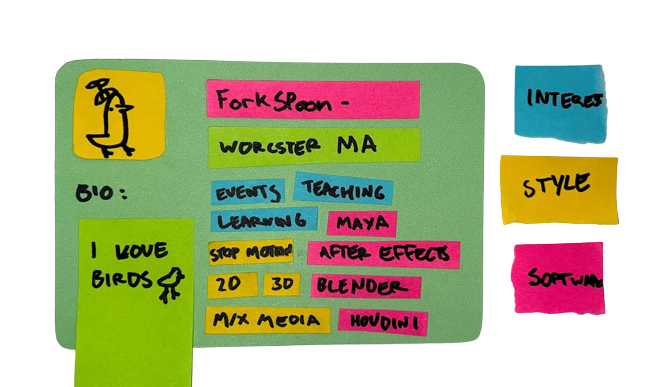 Forkspoon -
WORCSTER MA
BIO:
I LOVE
BIRDS
EVENTS TEACHING
LEARNING MAYA
STOP MOTION AFTER EFFECTS
2D 3D BLENDER
MIX MEDIA HOUDINI
INTERES
STYLE
SOFTWAR